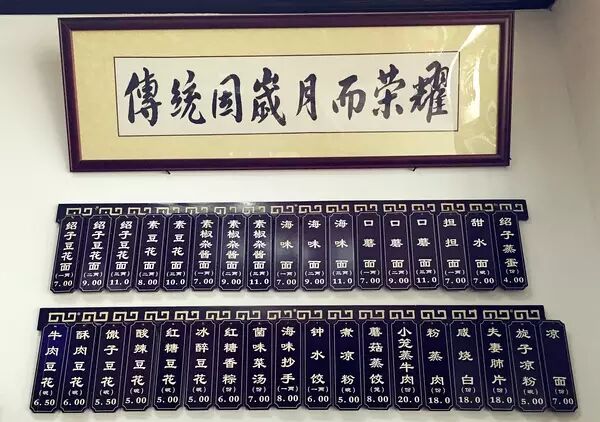 傳統因歲月而荣耀
绍子豆花面(一两)7.00
绍子豆花面(二两)9.00
绍子豆花面(三两)11.0
素豆花面(二两)8.00
素豆花面(三两)10.0
素椒杂酱面(一两)7.00
素椒杂酱面(二两)9.00
素椒杂酱面(三两)11.0
海味面(一两)7.00
海味面(二两)9.00
海味面(三两)11.0
口蘑面(一两)7.00
口蘑面(二两)9.00
口蘑面(三两)11.0
担担面(一两)7.00
甜水面(碗)7.00
绍子蒸蛋(份)4.00
牛肉豆花(碗)6.50
酥肉豆花(碗)6.00
馓子豆花(碗)5.50
酸辣豆花(碗)5.00
红糖豆花(碗)5.00
冰醉豆花(碗)5.00
红糖香粽(份)6.00
菌味菜汤(份)7.00
海味抄手(一两)8.00
钟水饺(一两)6.00
煮凉粉(碗)5.00
蘑菇蒸饺(份)8.00
小笼蒸牛肉(份)20.0
粉蒸肉(份)18.0
咸烧白(份)18.0
夫妻肺片(份)18.0
旋子凉粉(碗)5.00
凉面(份)7.00